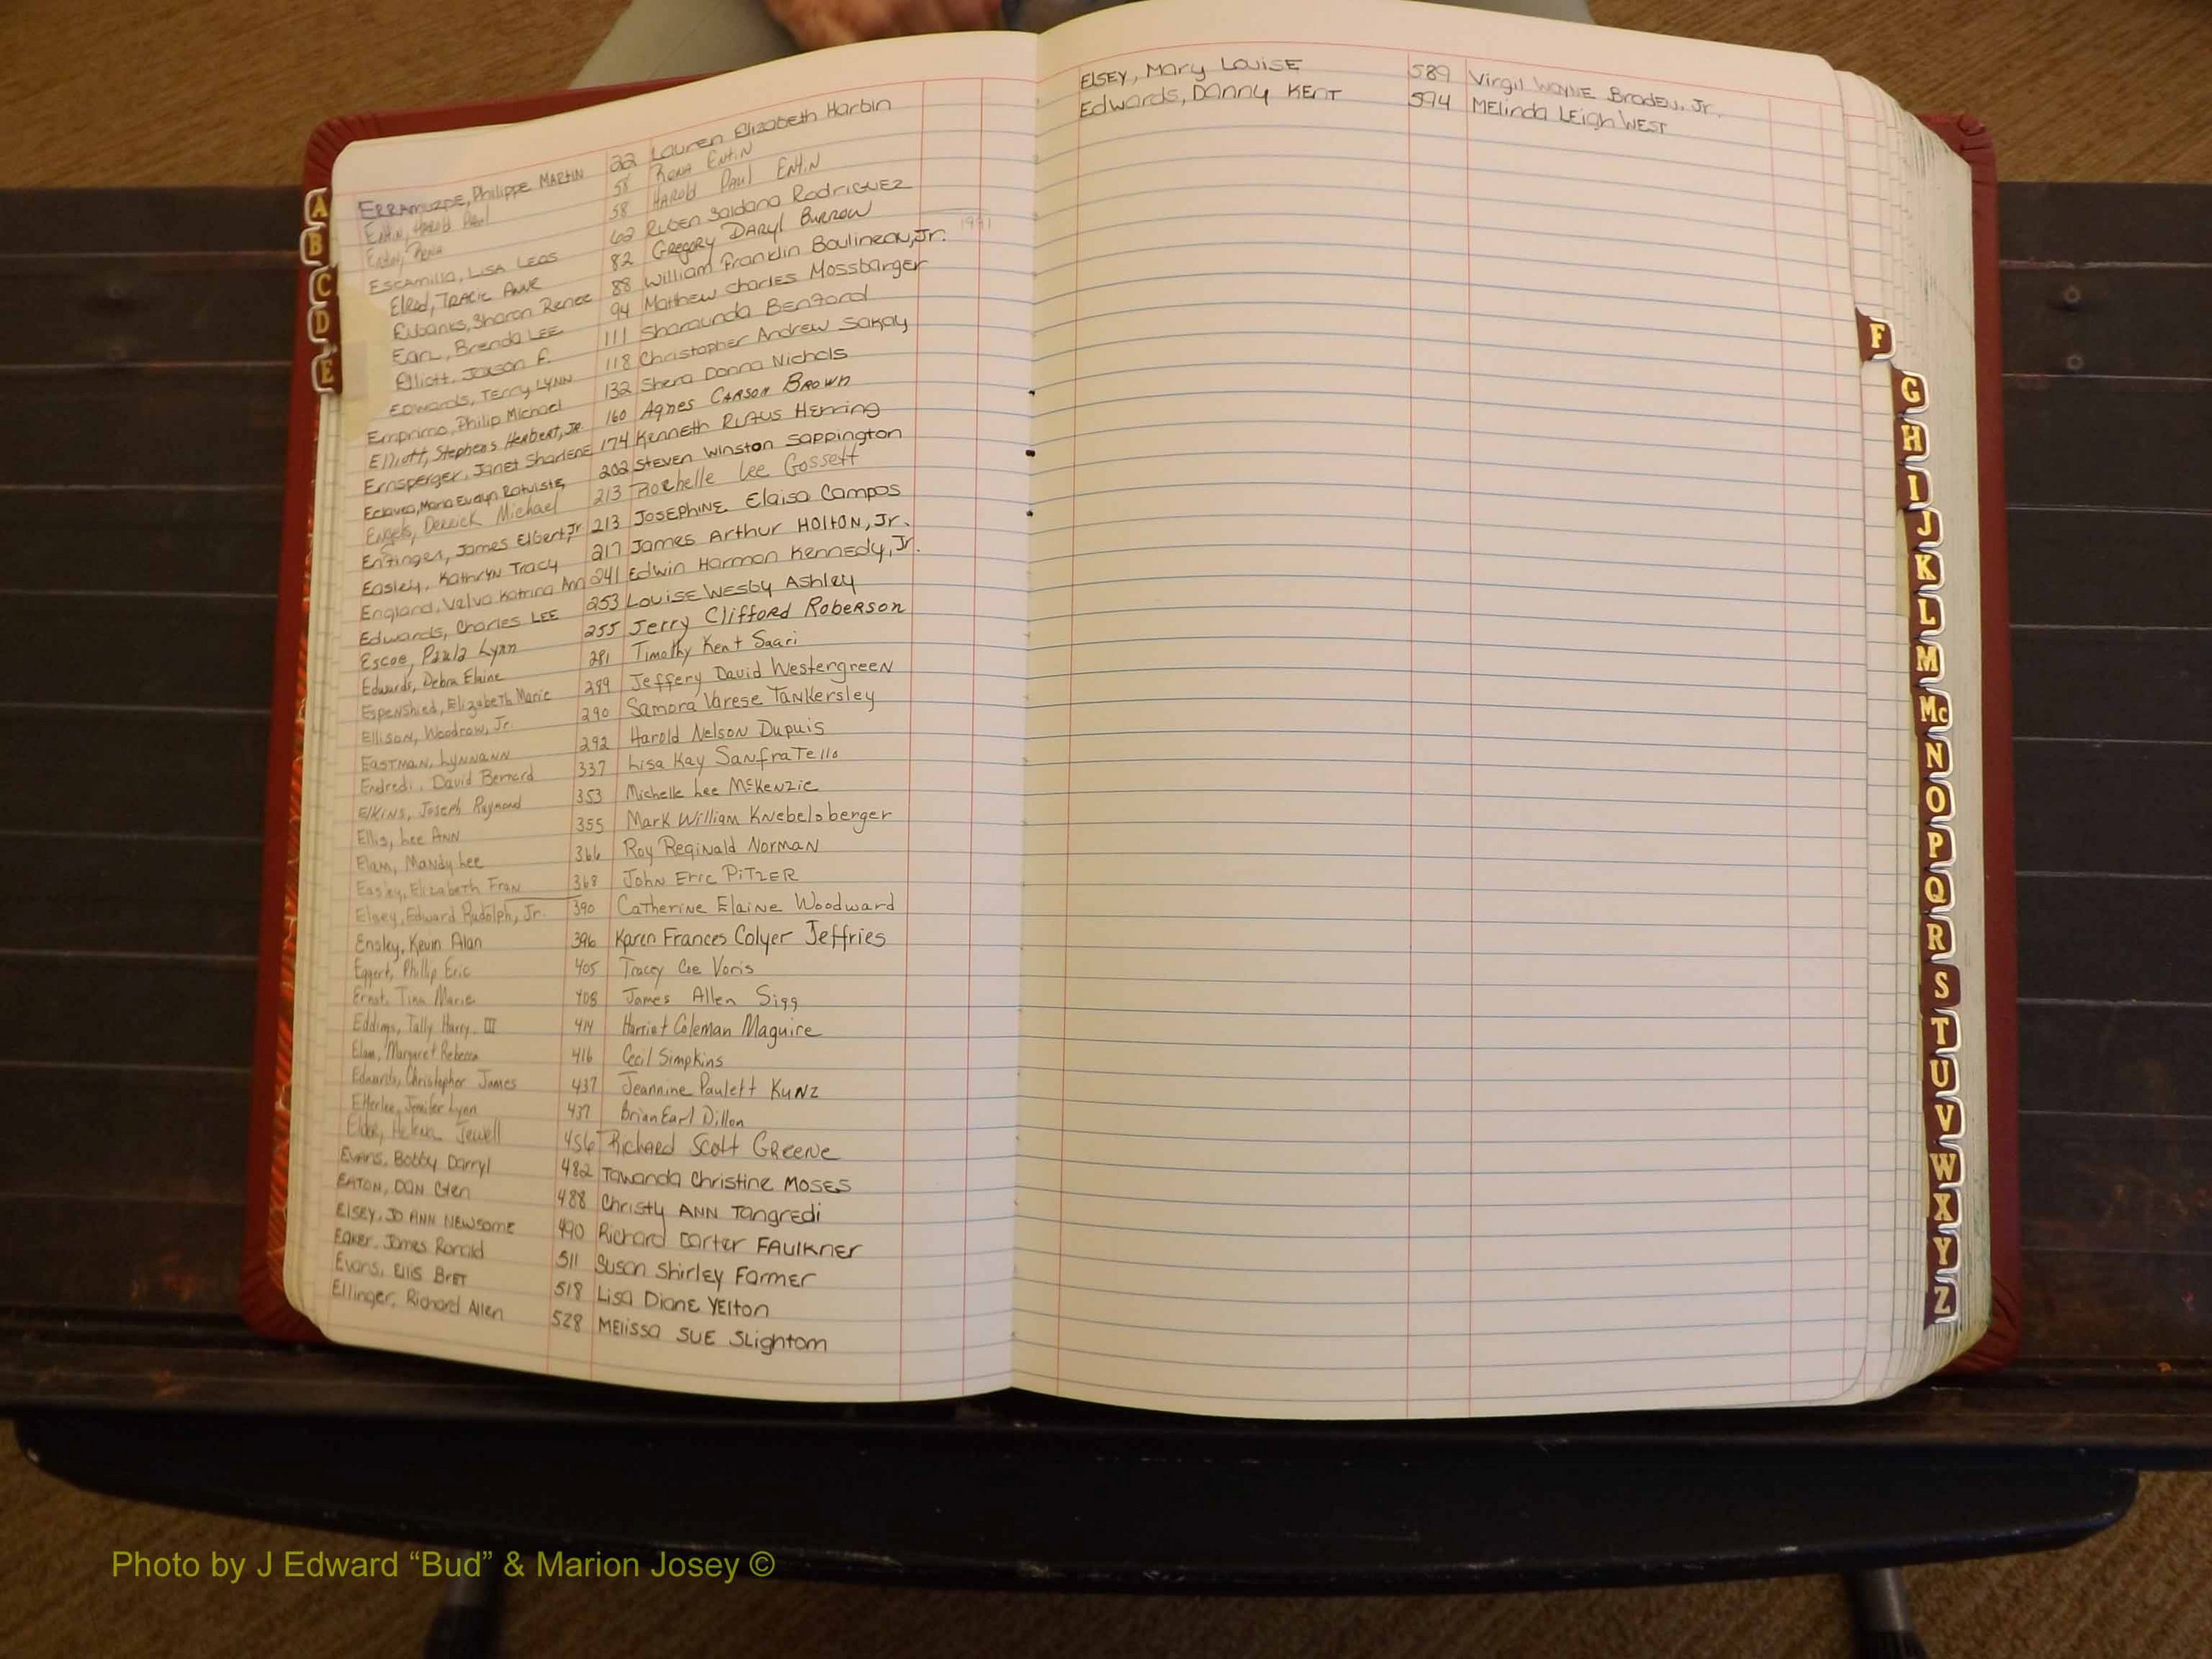 ERRAMUZPE, Philippe MARTIN 22 Lauren Elizabeth Harbin
Entin, Harold Paul 58 RONA ENtiN
Entin, Rona 58 HAROLD PAUL ENtiN
Escamilla, LISA LEOS 62 RUBEN Saldana RodriGUEZ
Elrod, TRACIE ANNE 82 Gregory DARYL BURROW
Eubanks, Sharon Renee 88 William Franklin Boulineau, Jr.
1991
Earl, Brenda LEE 94 Matthew Charles Mossbarger
Elliott, Jaxson F. 111 Sharaunda Benford
EDWARDS, TERRY LYNN 118 Christopher Andrew Sakay
Emprimo, Philip Michael 132 Shera Donna Nichols
Elliott, Stephens Herbert, JR. 160 Agnes CARSON BROWN
Ernsperger, Janet SharlENE 174 KENNETH RUFUS HERRING
Eclavea, Maria Evelyn 202 STEVEN WINSTON SAPPINGTON
Engels, Derrick Michael 213 Rochelle Lee Gossett
Enzinger, James Elbert, Jr 213 JOSEPHINE Elaisa Campos
Easley, Kathryn Tracy 217 James Arthur HOLTON, Jr.
England, Velva Katrina Ann 241 Edwin Harmon Kennedy, Jr.
Edwards, Charles LEE 253 LOUISE WESBY Ashley
Escoe, Paula Lynn 255 Jerry Clifford ROBERSON
Edwards, Debra Elaine 281 Timothy Kent Saari
EspeNshied, Elizabeth Marie 289 Jeffery David WestergreeN
EllisoN, Woodrow, Jr. 290 Samora Varese TaNkersley
EASTMAN, LyNNANN 292 Harold NelsoN Dupuis
Endredi, David Bernard 337 Lisa Kay SaNfraTello
ElkiNs, Joseph Raymond 353 Michelle Lee McKeNzie
Ellis, Lee ANN 355 Mark William KNebelsberger
Elam, MaNdy Lee 366 Roy RegiNald NormaN
Easley, Elizabeth Fran 368 JohN Eric PiTzer
Elsey, Edward Rudolph, Jr. 390 CaTheriNe ElaiNe Woodward
Ensley, Kevin Alan 396 Karen Frances Colyer Jeffries
Eggert, Phillip Eric 405 Tracey Coe Voris
Ernst, Tina Marie 408 James Allen Sigg
Eddings, Tally Harry III 414 Harriet Coleman Maguire
Elam, Margaret Rebecca 416 Cecil Simpkins
Edwards, Christopher James 437 Jeannine Paulett KUNZ
Etterlee, Jenifer Lynn 437 Brian Earl Dillon
Elder, Helean Jewell 456 RICHARD Scott GREENE
Evans, Bobby Darryl 482 Tawanda Christine MOSES
EATON, DAN Glen 488 Christy ANN Tangredi
ElSEY, JO ANN NEWSOME 490 Richard Carter FAULKNER
Eaker, James Ronald 511 Susan Shirley Farmer
Evans, Ellis BrET 518 Lisa Diane YElton
Ellinger, Richard Allen 528 MElissa SUE Slightom
ElSEY, Mary LouiSE 589 Virgil WAYNE Braden, Jr.
Edwards, Danny KENT 594 MElinda LEigh WEST
A
B
C
D
E
F
G
H
I
J
K
L
M
Mc
N
O
P
Q
R
S
T
U
V
W
X
Y
Z
Photo by J Edward “Bud” & Marion Josey ©